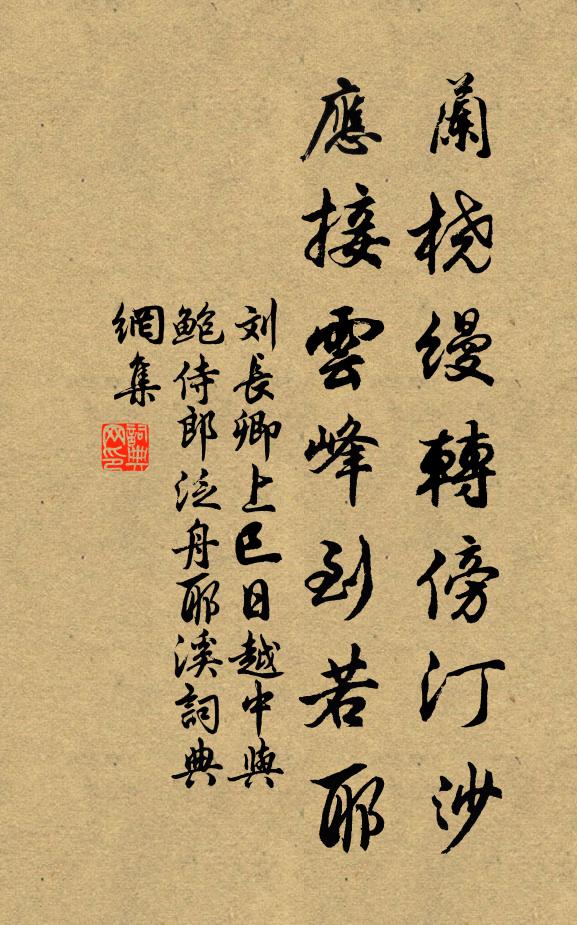 蘭橈縵轉傍汀沙
應接雲峰到若耶
刘長卿上巳日越中與
鮑侍郎泛舟耶溪詞典
網集
詞典
网印